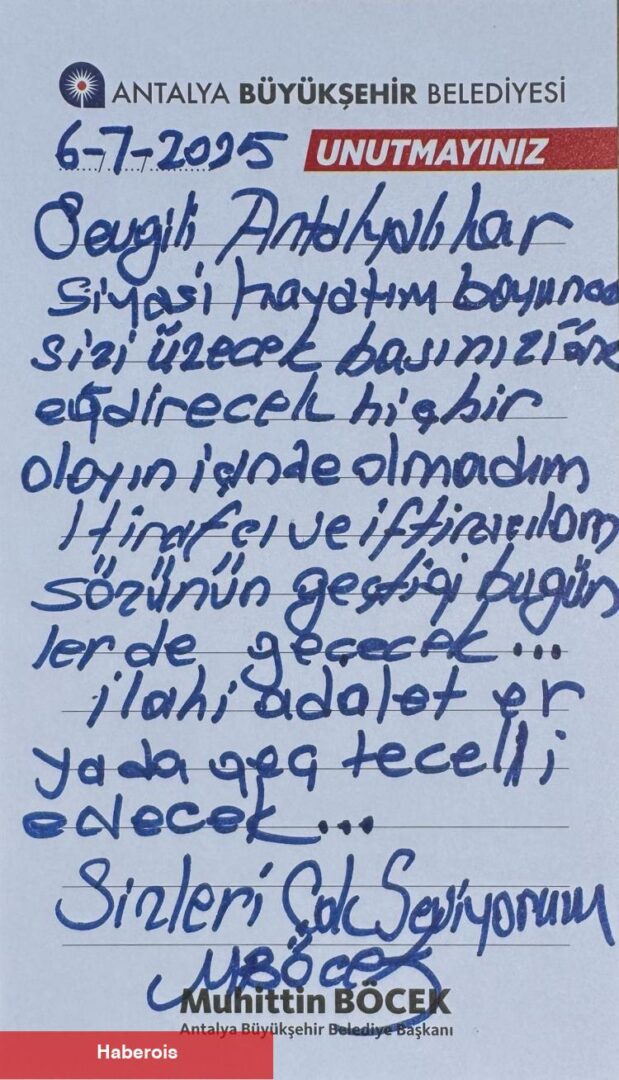 ANTALYA BÜYÜKŞEHİR BELEDİYESİ
6-7-2025 UNUTMAYINIZ
Sevgili Antalyalılar
siyasi hayatım boyunca
sizi üzecek başınızı öne
eğdirecek hiçbir
olayın içinde olmadım
İtirafçı ve iftiracıların
sözünün geçtiği bugün
lerde geçecek...
ilahi adalet er
ya da geç tecelli
edecek...
Sizleri Çok Seviyorum
MBÖcek
Muhittin BÖCEK
Antalya Büyükşehir Belediye Başkanı
Haberois